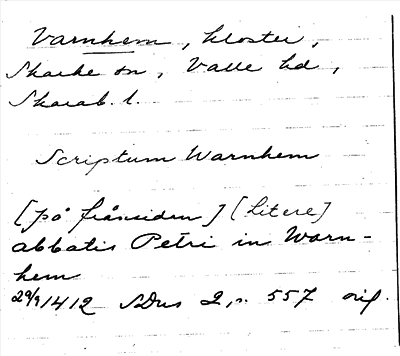 Varnhem, kloster,
Skarke sn, Valle hd,
Skarab. l.
Scriptum Warnhem
[på frånsidan] [litere]
abbatis Petri in Warn-
hem
29/9 1412 SDns 2, s. 557 orig.